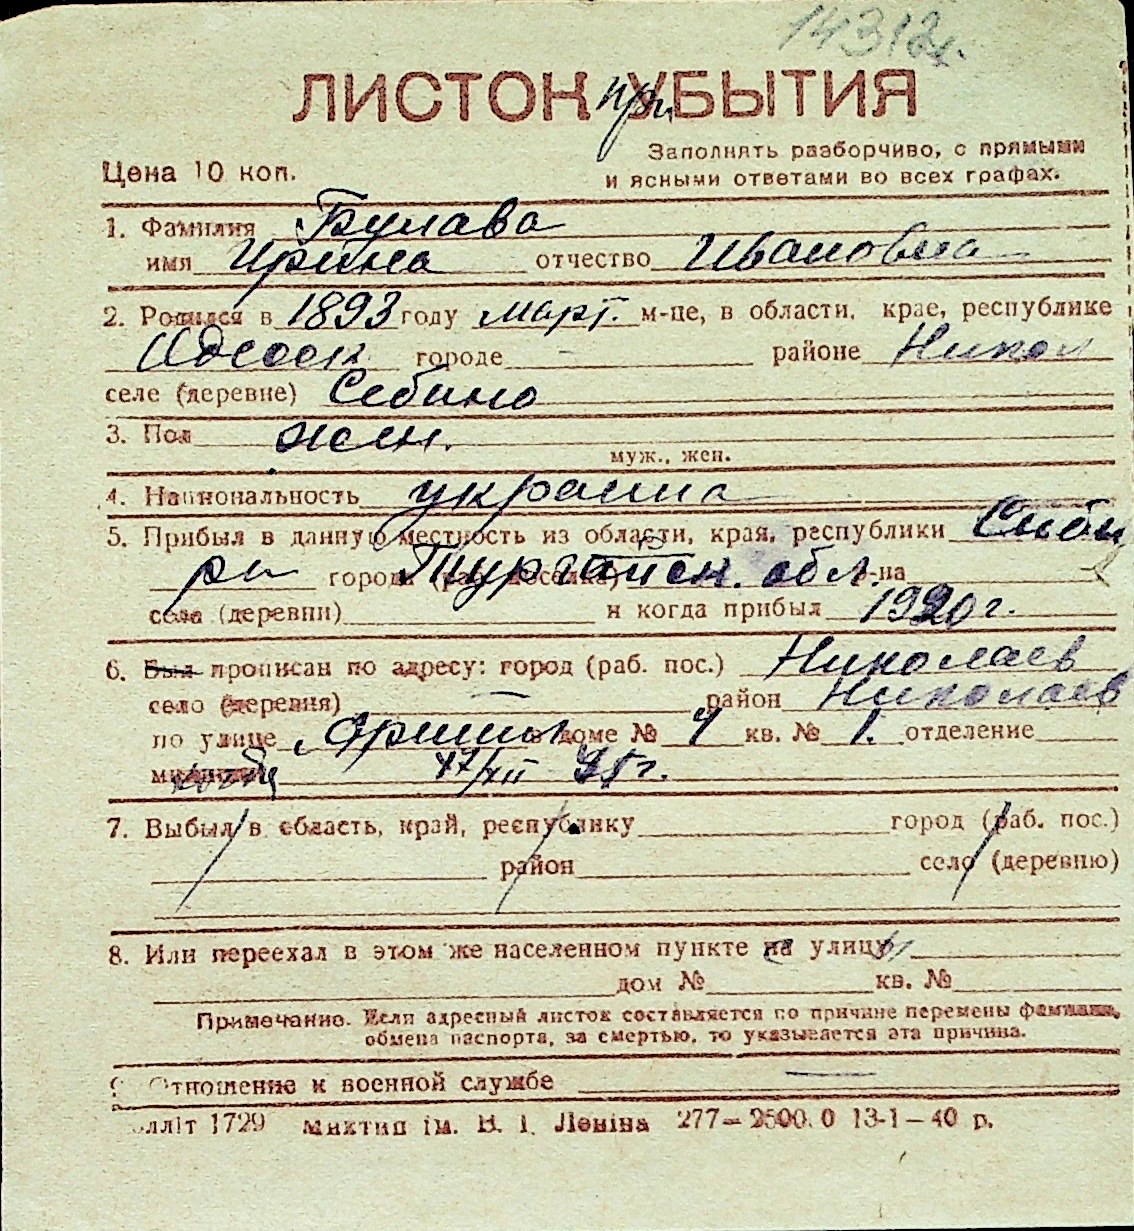 14312
ЛИСТОК УБЫТИЯ
При
Цена 10 коп.
Заполнять разборчиво, с прямыми
и ясными ответами во всех графах.
1. Фамилия Булава
имя Ирина отчество Ивановна
2. Родился в 1893 году март. м-це, в области, крае, республике
Одесск городе — районе Никол
селе (деревне) Себино
3. Пол жен.
муж., жен.
4. Национальность украинка
5. Прибыл в данную местность из области, края, республики Сиби
ри города (раб. поселка) Тургайск. обл. р-на
села (деревни) и когда прибыл 1920 г.
6. Был прописан по адресу: город (раб. пос.) Николаев
село (деревня) — район Николаев
по улице в доме № 4 кв. № 1. отделение
милиции 17/XII г.
7. Выбыл в область, край, республику город (раб. пос.)
район село (деревню)
8. Или переехал в этом же населенном пункте на улицу
дом № кв. №
Примечание. Если адресный листок составляется по причине перемены фамилии,
обмена паспорта, за смертью, то указывается эта причина.
9. Отношение к военной службе —
олліт 1729 Миктип ім. В. І. Леніна 277—2500.0 13-1—40 р.